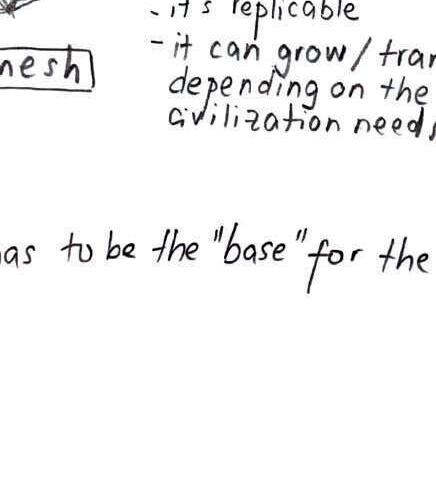 - it's replicable
- it can grow/tran
mesh
depending on the
civilization needs
as to be the "base" for the